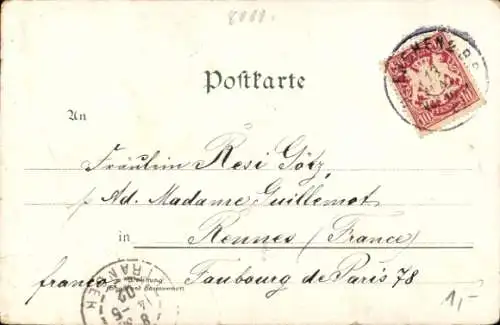 8000.
MÜNCHEN 2. B.P.
13
10
Postkarte
An
Fräulein Resi Götz,
p. Ad. Madame Guillemot
in Rennes (France)
franco Faubourg de Paris 78
1,-